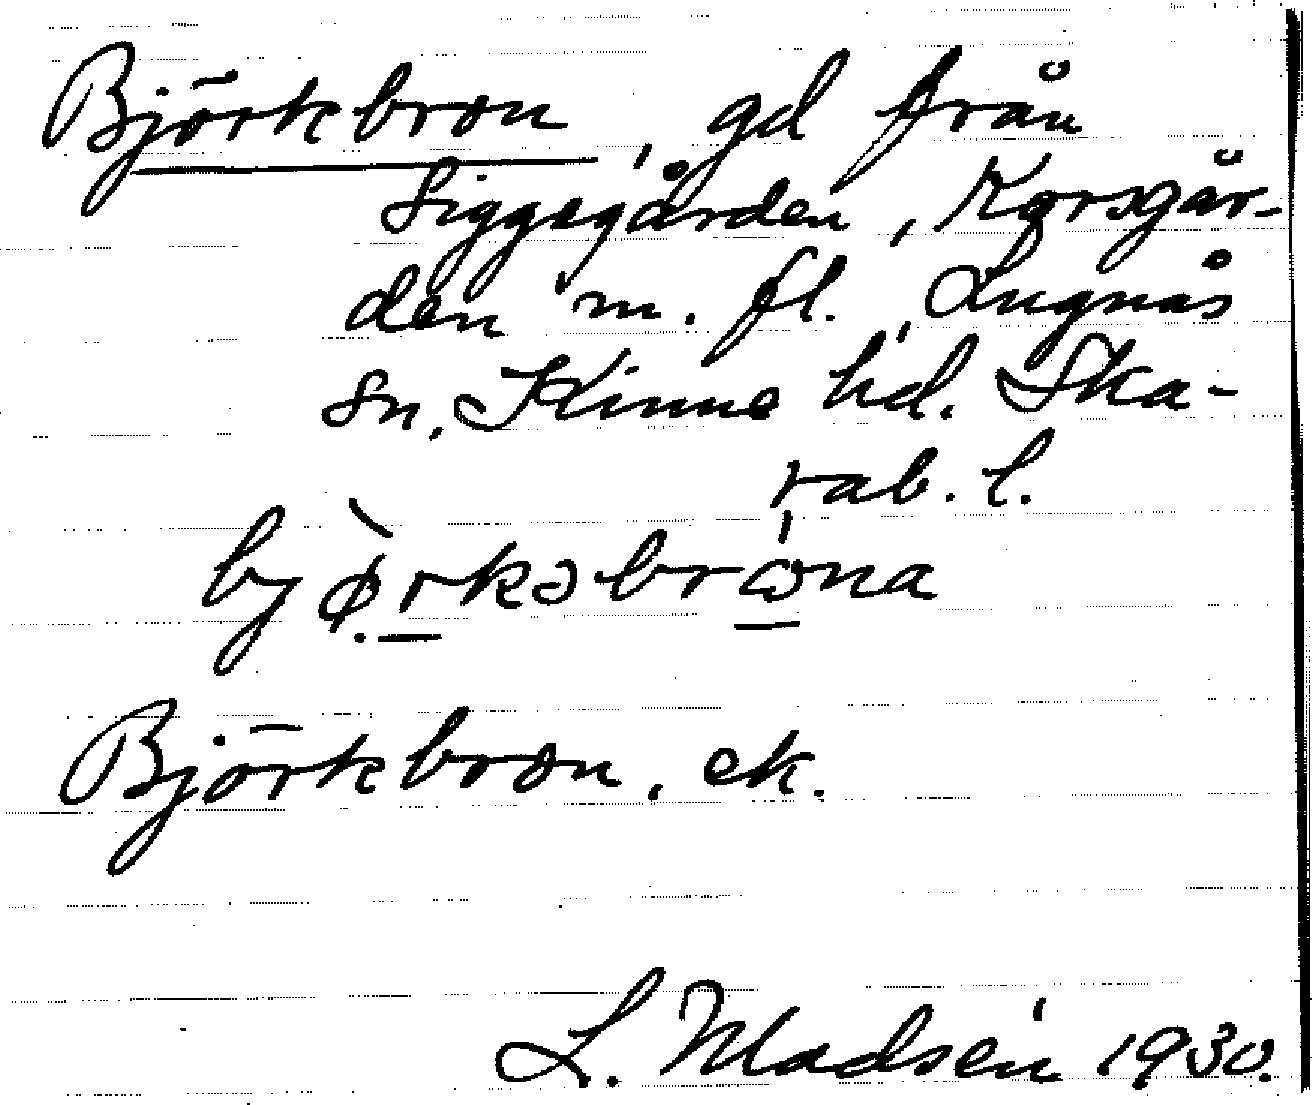 Björkbron, gd från
Siggegården, Korsgår-
den m. fl., Lugnås
sn, Kinne hd. Ska-
rab. l.
bjø̀rkəbrɷna
Björkbron, ek.
L. Madsén 1930.